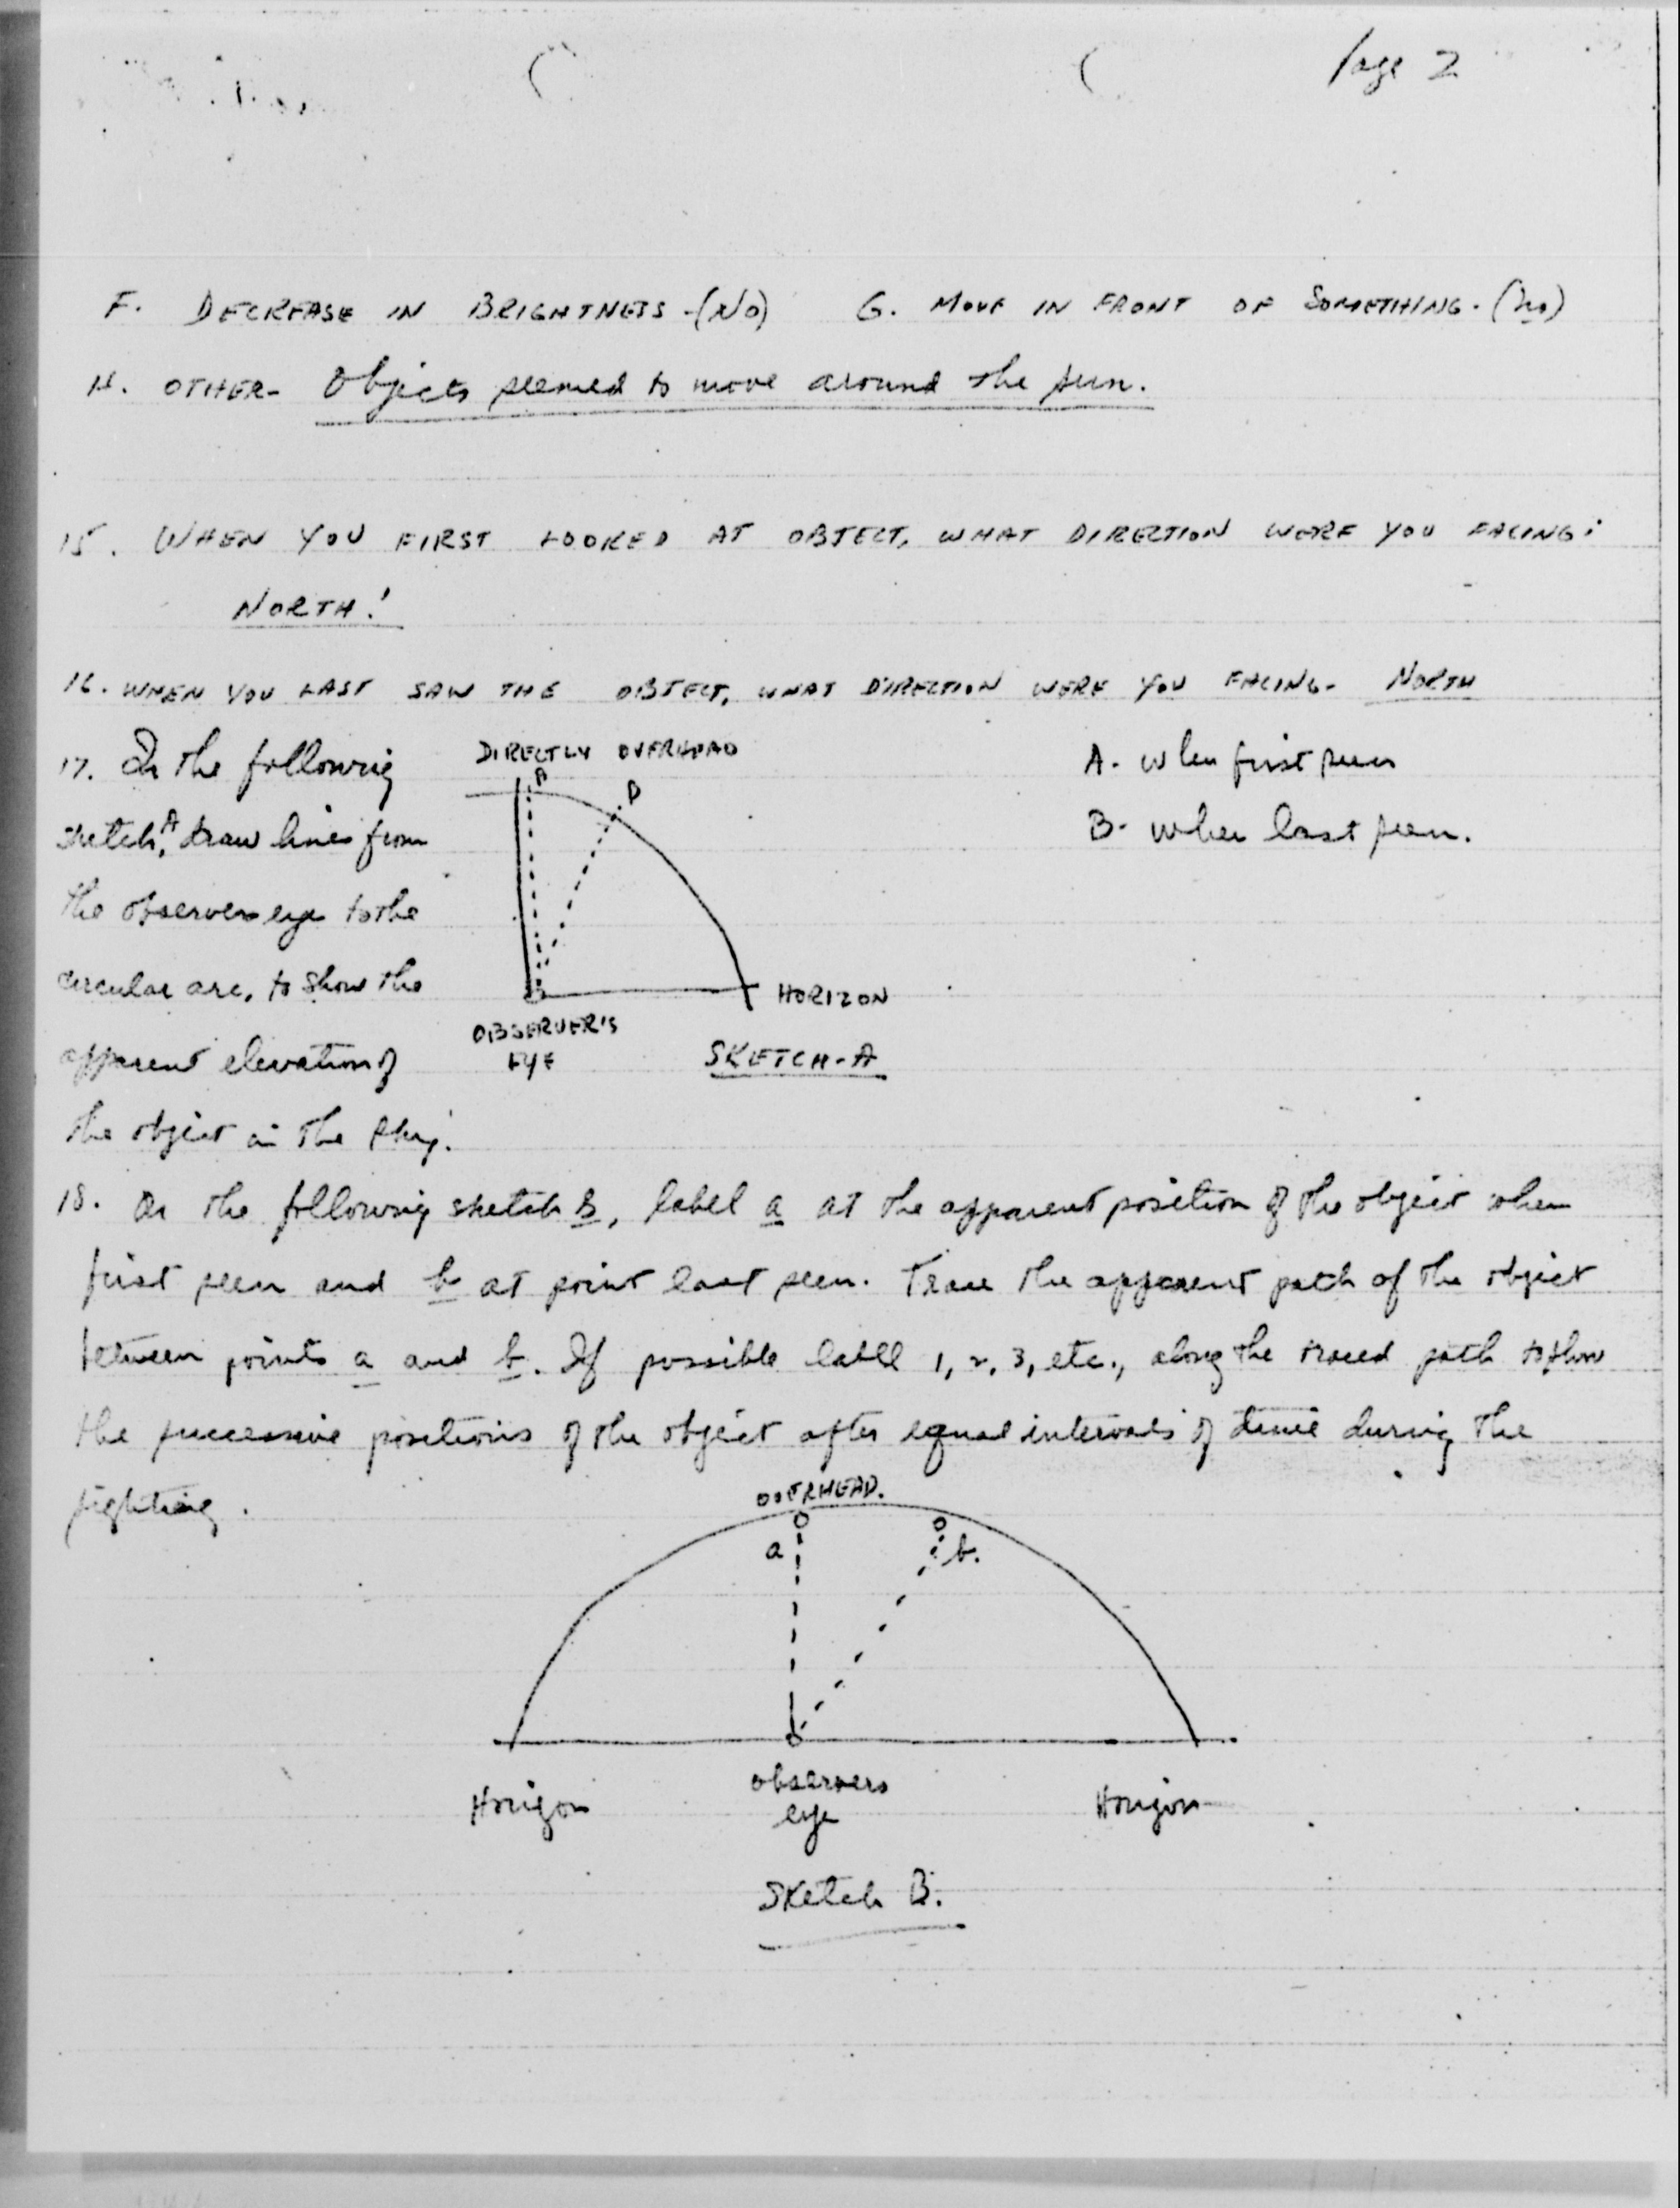 Page 2
F. DECREASE IN BRIGHTNESS -(NO) G. MOVE IN FRONT OF SOMETHING. (no)
H. OTHER- Objects seemed to move around the sun.
15. WHEN YOU FIRST LOOKED AT OBJECT, WHAT DIRECTION WERE YOU FACING:
NORTH!
16. WHEN YOU LAST SAW THE OBJECT, WHAT DIRECTION WERE YOU FACING- NORTH
17. In the following
sketch, A draw lines from
the observers eye to the
circular arc, to show the
apparent elevation of
the object in the sky.
DIRECTLY OVERHEAD
A
B
HORIZON
OBSERVER'S
EYE
SKETCH-A
A- when first seen
B- when last seen.
18. On the following sketch B, label a at the apparent position of the object when
first seen and b at point last seen. Trace the apparent path of the object
between points a and b. If possible labll 1, 2, 3, etc., along the traced path to show
the successive positions of the object after equal intervals of time during the
sighting.
OVERHEAD.
a
b.
Horizon
observers
eye
Horizon
Sketch B.